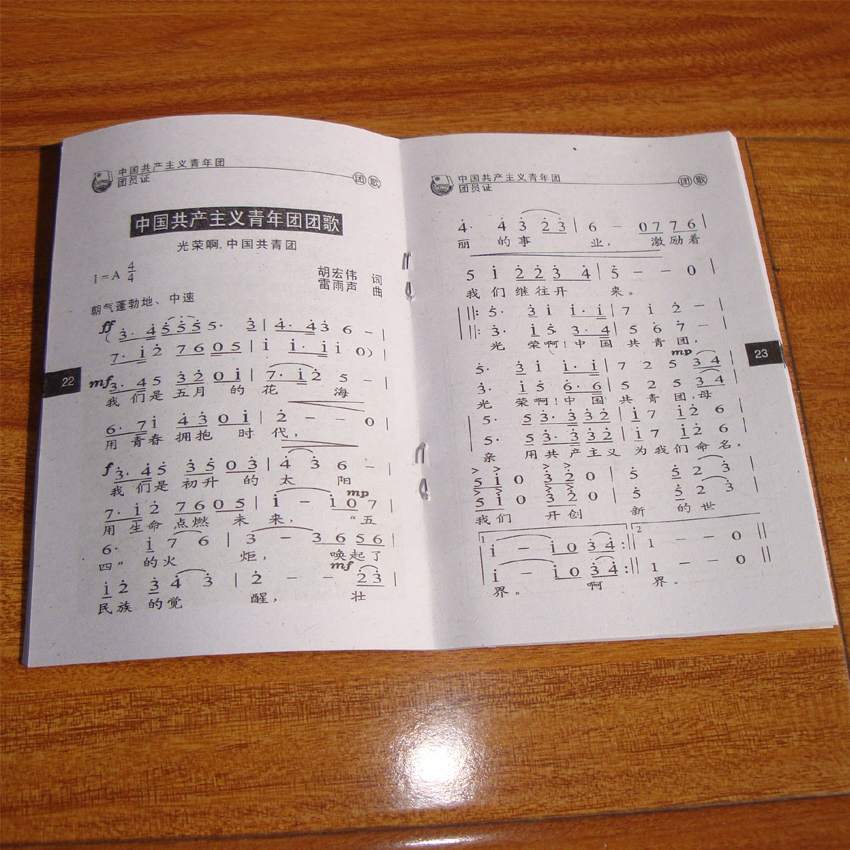 中国共产主义青年团
团员证
团歌
中国共产主义青年团团歌
光荣啊,中国共青团
1=A 4/4
胡宏伟 词
雷雨声 曲
朝气蓬勃地、中速
ff
(3· 4 5 5 5 5 5· 3 | 4· 4 3 6 - |
7· i 2 7 6 0 5 | i i· i i 0) |
mf 3· 4 5 3 2 0 i | 7· i 2 5 - |
我们是五月 的 花 海
6· 7 i 4 3 0 i | 2 - - 0 |
用青春拥抱 时 代,
f 3· 4 5 3 5 0 3 | 4 3 6 - |
我们是初升 的 太 阳
mp
7· i 2 7 6 0 5 | i - i 0 7 |
用生命点燃 未 来, “五
6· i 7 6 | 3 - 3 6 5 6 |
四”的火 炬, 唤起了
mf
i 2 3 4 3 | 2 - - 2 3 |
民族 的觉 醒, 壮
22
中国共产主义青年团
团员证
团歌
4· 4 3 2 3 | 6 - 0 7 7 6 |
丽 的事 业, 激励着
5 i 2 2 3 4 | 5 - - 0 |
我们继往开 来。
||: 5· 3 i i· i | 7 i 2 - |
||: 3· i 5 3· 4 | 5 6 7 - |
光 荣啊!中国 共青团,
mp
5· 3 i i· i | 7 2 5 3 4 |
3· i 5 6· 6 | 5 2 5 3 4 |
光 荣啊!中国 共青团,母
5· 5 3· 3 3 2 | i 7 i 2 6 |
5· 5 3· 3 3 2 | i 7 i 2 6 |
亲 用共产主义 为我们命名,
5 i 0 3 2 0 | 5 5 2 3 |
5 5 0 3 2 0 | 5 5 2 3 |
我们 开创 新 的世
1. i - i 0 3 4 :|| 2. 1 - - 0 ||
i - i 0 3 4 :|| 1 - - 0 ||
界。 啊 界。
23